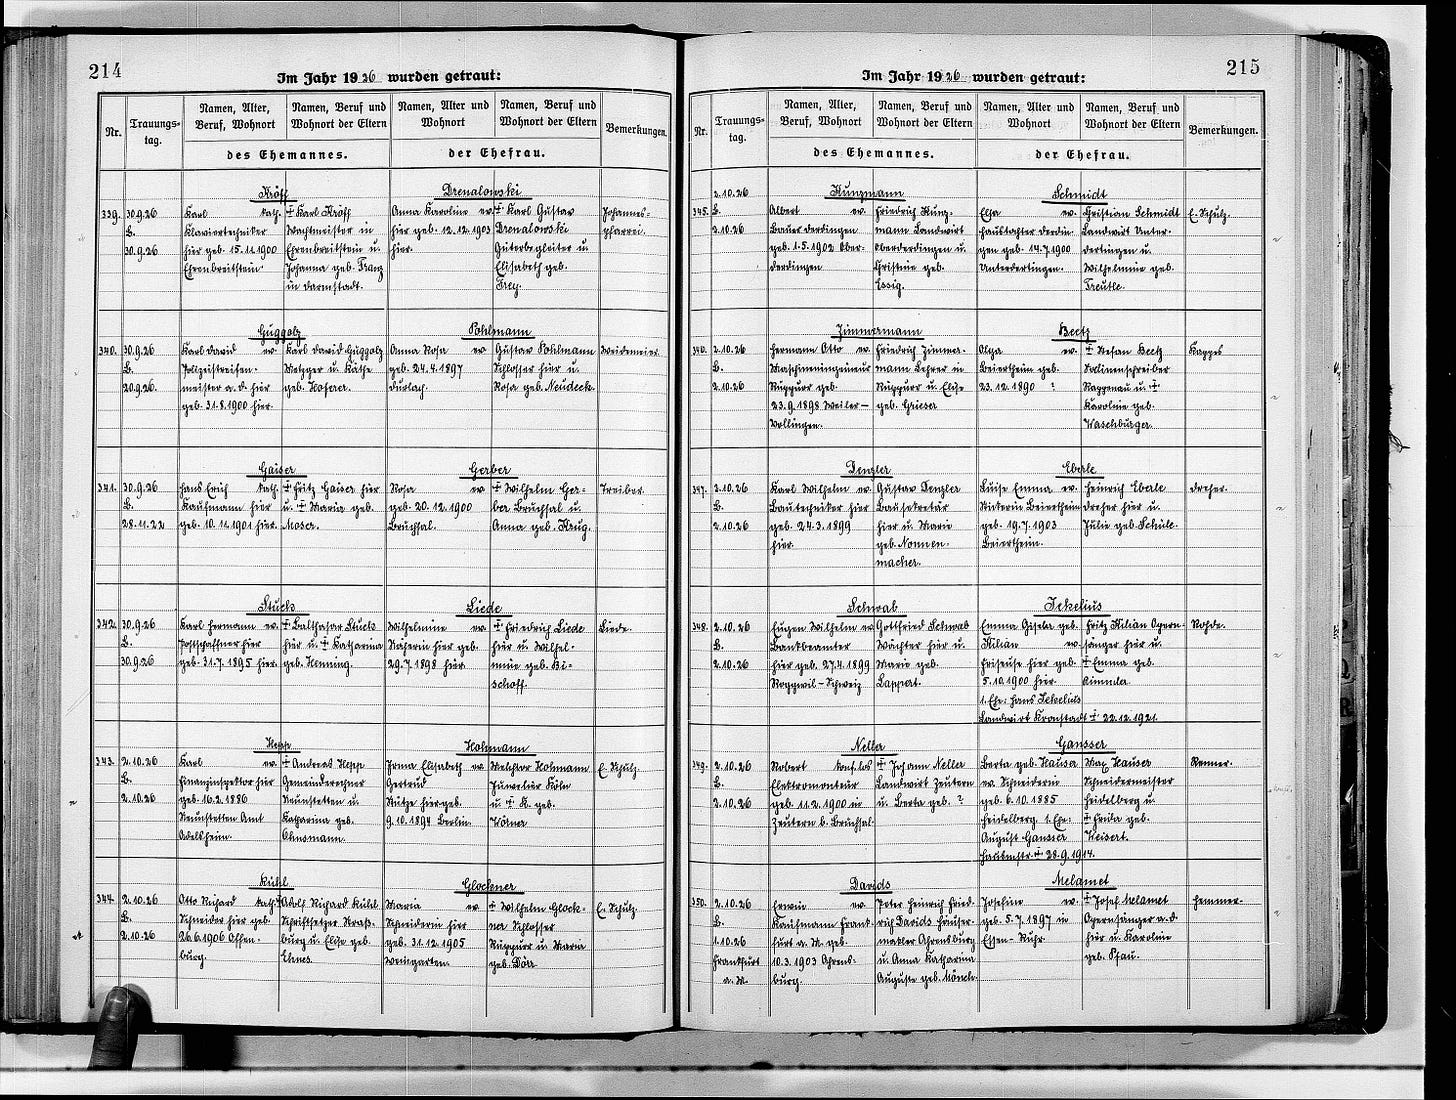 214
Im Jahr 1926 wurden getraut:
Nr.
Trauungs-
tag.
Namen, Alter,
Beruf, Wohnort
Namen, Beruf und
Wohnort der Eltern
des Ehemannes.
Namen, Alter und
Wohnort
Namen, Beruf und
Wohnort der Eltern
der Ehefrau.
Bemerkungen.
339.
30.9.26
B.
30.9.26
Kröff
Karl kath.
Klaviertechniker
hier geb. 15.11.1900
Ehrenbreitstein
‡ Karl Kröff
Wachtmeister in
Ehrenbreitstein u.
Johanna geb. Franz
in Darmstadt.
Drenalowski
Anna Karoline ev.
hier geb. 12.12.1903
hier.
‡ Karl Gustav
Drenalowski
Güterbegleiter u.
Elisabeth geb.
Frey.
Johannes-
pfarrei.
340.
30.9.26
B.
20.9.26.
Guggolz
Karl David ev.
Polizeistreifen-
meister a. D. hier
geb. 31.8.1900 hier.
Karl David Guggolz
Metzger u. Käthe
geb. Hoferer.
Pohlmann
Anna Rosa ev
geb. 24.4.1897
Durlach.
Gustav Pohlmann
Schlosser hier u.
Rosa geb. Neudeck.
Weidemeier.
341.
30.9.26
B.
28.11.22
Gaiser
Hans Erich kath.
Kaufmann hier
geb. 10.11.1901 hier.
‡ Fritz Gaiser hier
u. ‡ Maria geb.
Moser.
Gerber
Rosa ev
geb. 20.12.1900
Bruchsal.
‡ Wilhelm Ger-
ber Bruchsal u.
Anna geb. Krug.
Treiber.
342.
30.9.26
B.
30.9.26
Stuck
Karl Hermann ev.
Postschaffner hier
geb. 31.7.1895 hier.
‡ Balthasar Stuck
hier u. ‡ Katharina
geb. Henning.
Liede
Wilhelmine ev
Näherin hier geb.
29.7.1898 hier.
‡ Friedrich Liede
hier u. Wilhel-
mine geb. Bi-
schoff.
Liede.
343.
2.10.26
B.
2.10.26
Hepp
Karl ev.
Finanzinspektor hier
geb. 16.2.1886
Neunstetten Amt
Adelsheim.
‡ Andreas Hepp
Gemeinderechner
Neunstetten u.
Katharina geb.
Ehnsmann.
Hohmann
Irma Elisabeth ev
Gertrud
Stütze hier geb.
9.10.1894 Berlin.
Melchior Hohmann
Juwelier Köln
u. ‡ K. geb.
Wörner
E. Schulz.
344.
2.10.26
B.
2.10.26
Kühl
Otto Richard kath.
Schneider hier geb.
26.6.1906 Offen-
burg.
Adolf Richard Kühl
Schriftsetzer Straß-
burg u. Elise geb.
Ehnes.
Glockner
Maria ev.
Schneiderin hier
geb. 31.12.1905
Weingarten.
‡ Wilhelm Glock-
ner Schlosser
Rüppurr u. Maria
geb. Dörr
E. Schulz
215
Im Jahr 1926 wurden getraut:
Nr.
Trauungs-
tag.
Namen, Alter,
Beruf, Wohnort
Namen, Beruf und
Wohnort der Eltern
des Ehemannes.
Namen, Alter und
Wohnort
Namen, Beruf und
Wohnort der Eltern
der Ehefrau.
Bemerkungen.
345.
2.10.26
B.
2.10.26
Kunzmann
Albert ev.
Bauer Derdingen
geb. 1.5.1902 Ober-
derdingen
Friedrich Kunz-
mann Landwirt
Oberderdingen u.
Christine geb.
Essig.
Schmidt
Elsa ev.
Haustochter Derdin-
gen geb. 14.7.1900
Unterdertingen.
Christian Schmidt
Landwirt Unter-
dertingen u.
Wilhelmine geb.
Treutle.
E. Schulz.
346.
2.10.26
B.
2.10.26
Zimmermann
Hermann Otto ev.
Maschineningenieur
Rüppurr geb.
23.9.1898 Weiler-
Vollingen.
Friedrich Zimmer-
mann Lehrer in
Rüppurr u. Elise
geb. Grieser
Beetz
Olga ev.
Beiertheim geb.
23.12.1890 ?
‡ Stefan Beetz
Salinenschreiber
Rappenau u. ‡
Karoline geb.
Waschburger.
Kappes
347.
2.10.26
B.
2.10.26
Denzler
Karl Wilhelm ev.
Bautechniker hier
geb. 24.3.1899
hier.
Gustav Denzler
Bausekretär
hier u. Marie
geb. Nonnen-
macher.
Eberle
Luise Emma ev.
Beiertheim
geb. 19.7.1903
Beiertheim.
Heinrich Eberle
Dreher hier u.
Julie geb. Schüle.
Dreher.
348.
2.10.26
B.
2.10.26
Schwab
Eugen Wilhelm ev
Bankbeamter
hier geb. 27.4.1899
Roggwil-Schweiz
Gottfried Schwab
Wächter hier u.
Marie geb.
Lappert.
Jekelius
Emma Gisela geb.
Kilian ev.
Friseuse hier geb.
5.10.1900 hier.
1. Ehe: Hans Jekelius
Landwirt Kronstadt ‡ 22.12.1921.
Fritz Kilian Opern-
sänger hier u.
‡ Emma geb.
Kimmla.
Rohde.
349.
2.10.26
B.
2.10.26
Neller
Robert konf.los
Elektromonteur
geb. 11.2.1900 in
Zeutern b. Bruchsal.
‡ Johann Neller
Landwirt Zeutern
u. Berta geb. ?
Gansser
Berta geb. Hauser
ev. Schneiderin
geb. 6.10.1885
Heidelberg. 1. Ehe:
August Gansser
Hauptmstr. ‡ 28.9.1914.
Max Hauser
Schneidermeister
Heidelberg u.
‡ Frida geb.
Weisert.
Renner.
350.
2.10.26
B.
1.10.26
Frankfurt
a. M.
Davids
Erwin ev.
Kaufmann Frank-
furt a. M. geb.
10.3.1903 Ahrens-
burg.
Peter Heinrich Fried-
rich Davids Häuser-
makler Ahrensburg
u. Anna Katharina
Auguste geb. Mönch.
Melamet
Josefine ev.
geb. 5.7.1897 in
Essen-Ruhr
‡ Josef Melamet
Opernsänger a. D.
hier u. Karoline
geb. Pfau.
Hemmer.